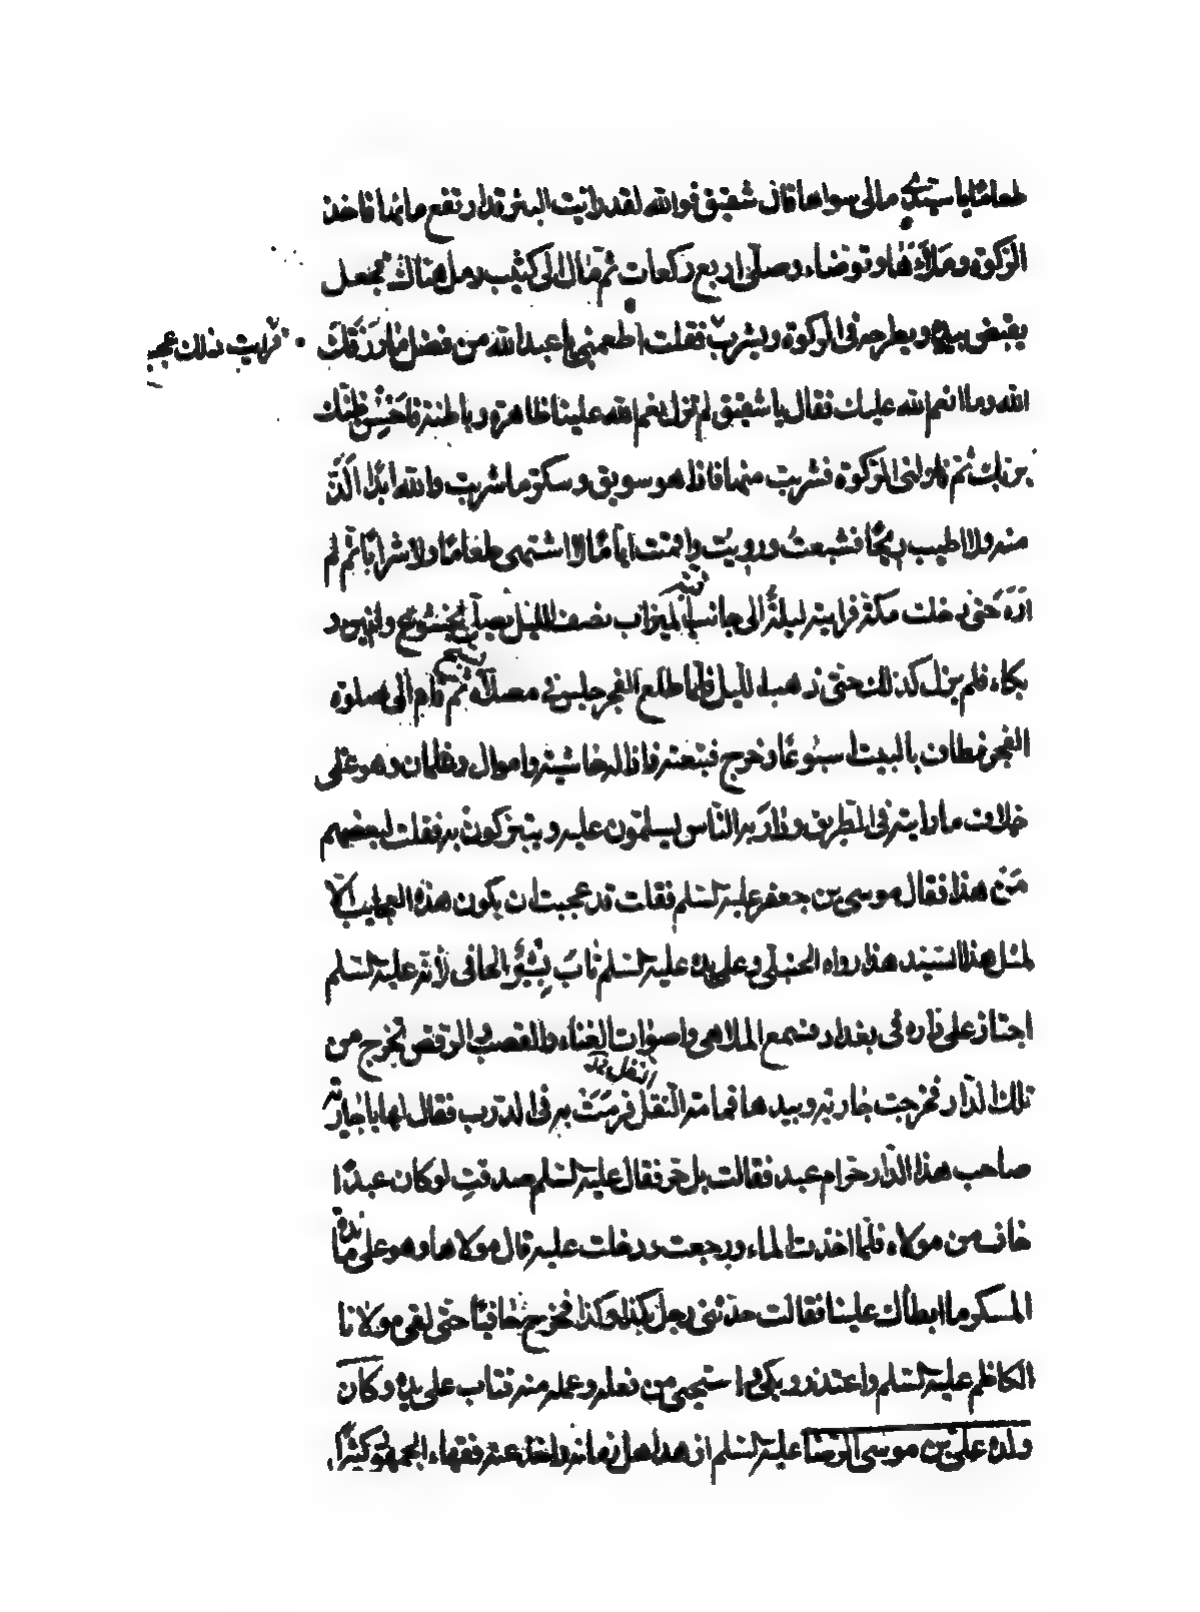 طعامًا يا سيدي مالى سواها قال شقيق فوالله لقد رايت البئر قد ارتفع مائها فاخذ
الركوة وملأها وتوضاء وصلّى اربع ركعات ثم مال الى كثيب رمل هناك فجعل
يقبض بيده ويطرحه فى الركوة ويشرب فقلت اطعمنى يا عبد الله من فضل ما رزقك
فرايت
الله وما انعم الله عليك فقال يا شقيق لم تزل نعم الله علينا ظاهرة وباطنة فاحسن ظنك
بربك ثم ناولنى الركوة فشربت منها فاذا هو سويق وسكر ما شربت والله ابدًا الذّ
منه ولا اطيب ريحًا فشبعت ورويت واقمت ايامًا لا اشتهى طعامًا ولا شرابًا ثم لم
اره حتى دخلت مكة فرايته ليلة الى جانب الميزاب نصف الليل يصلى بخشوع وانين و
بكاء فلم يزل كذلك حتى ذهب الليل فلما طلع الفجر جلس فى مصلاه ثم قام الى صلوة
الفجر فطاف بالبيت اسبوعًا وخرج فتبعته فاذا له حاشية واموال وغلمان وهو على
خلاف ما رايته فى الطريق ودار به الناس يسلمون عليه ويتبركون به فقلت لبعضهم
من هذا فقال موسى بن جعفر عليه السلم فقلت قد عجبت ان يكون هذه العجايب الّا
لمثل هذا السيد هذا رواه الحنبلى وعلى يده عليه السلم تاب بشر الحافى لأنه عليه السلم
اجتاز على داره فى بغداد فسمع الملاهى واصوات الغناء والقصب والرقص تخرج من
تلك الدار فخرجت جارية وبيدها قمامة النقل فرمت به فى الدرب فقال لها يا جارية
صاحب هذا الدار حر ام عبد فقالت بل حر فقال عليه السلم صدقتِ لو كان عبدًا
خاف من مولاه فلما اخذت الماء ورجعت ودخلت عليه قال مولاها وهو على مائدة
المسكر ما ابطأك علينا فقالت حدثنى رجل بكذا وكذا فخرج حافيًا حتى لقى مولانا
الكاظم عليه السلم واعتذر وبكى واستحيى من فعله وعمله منه فتاب على يده وكان
ولده على بن موسى الرضا عليه السلم ازهد اهل زمانه واخذ عنه فقهاء الجمهور كثيرًا